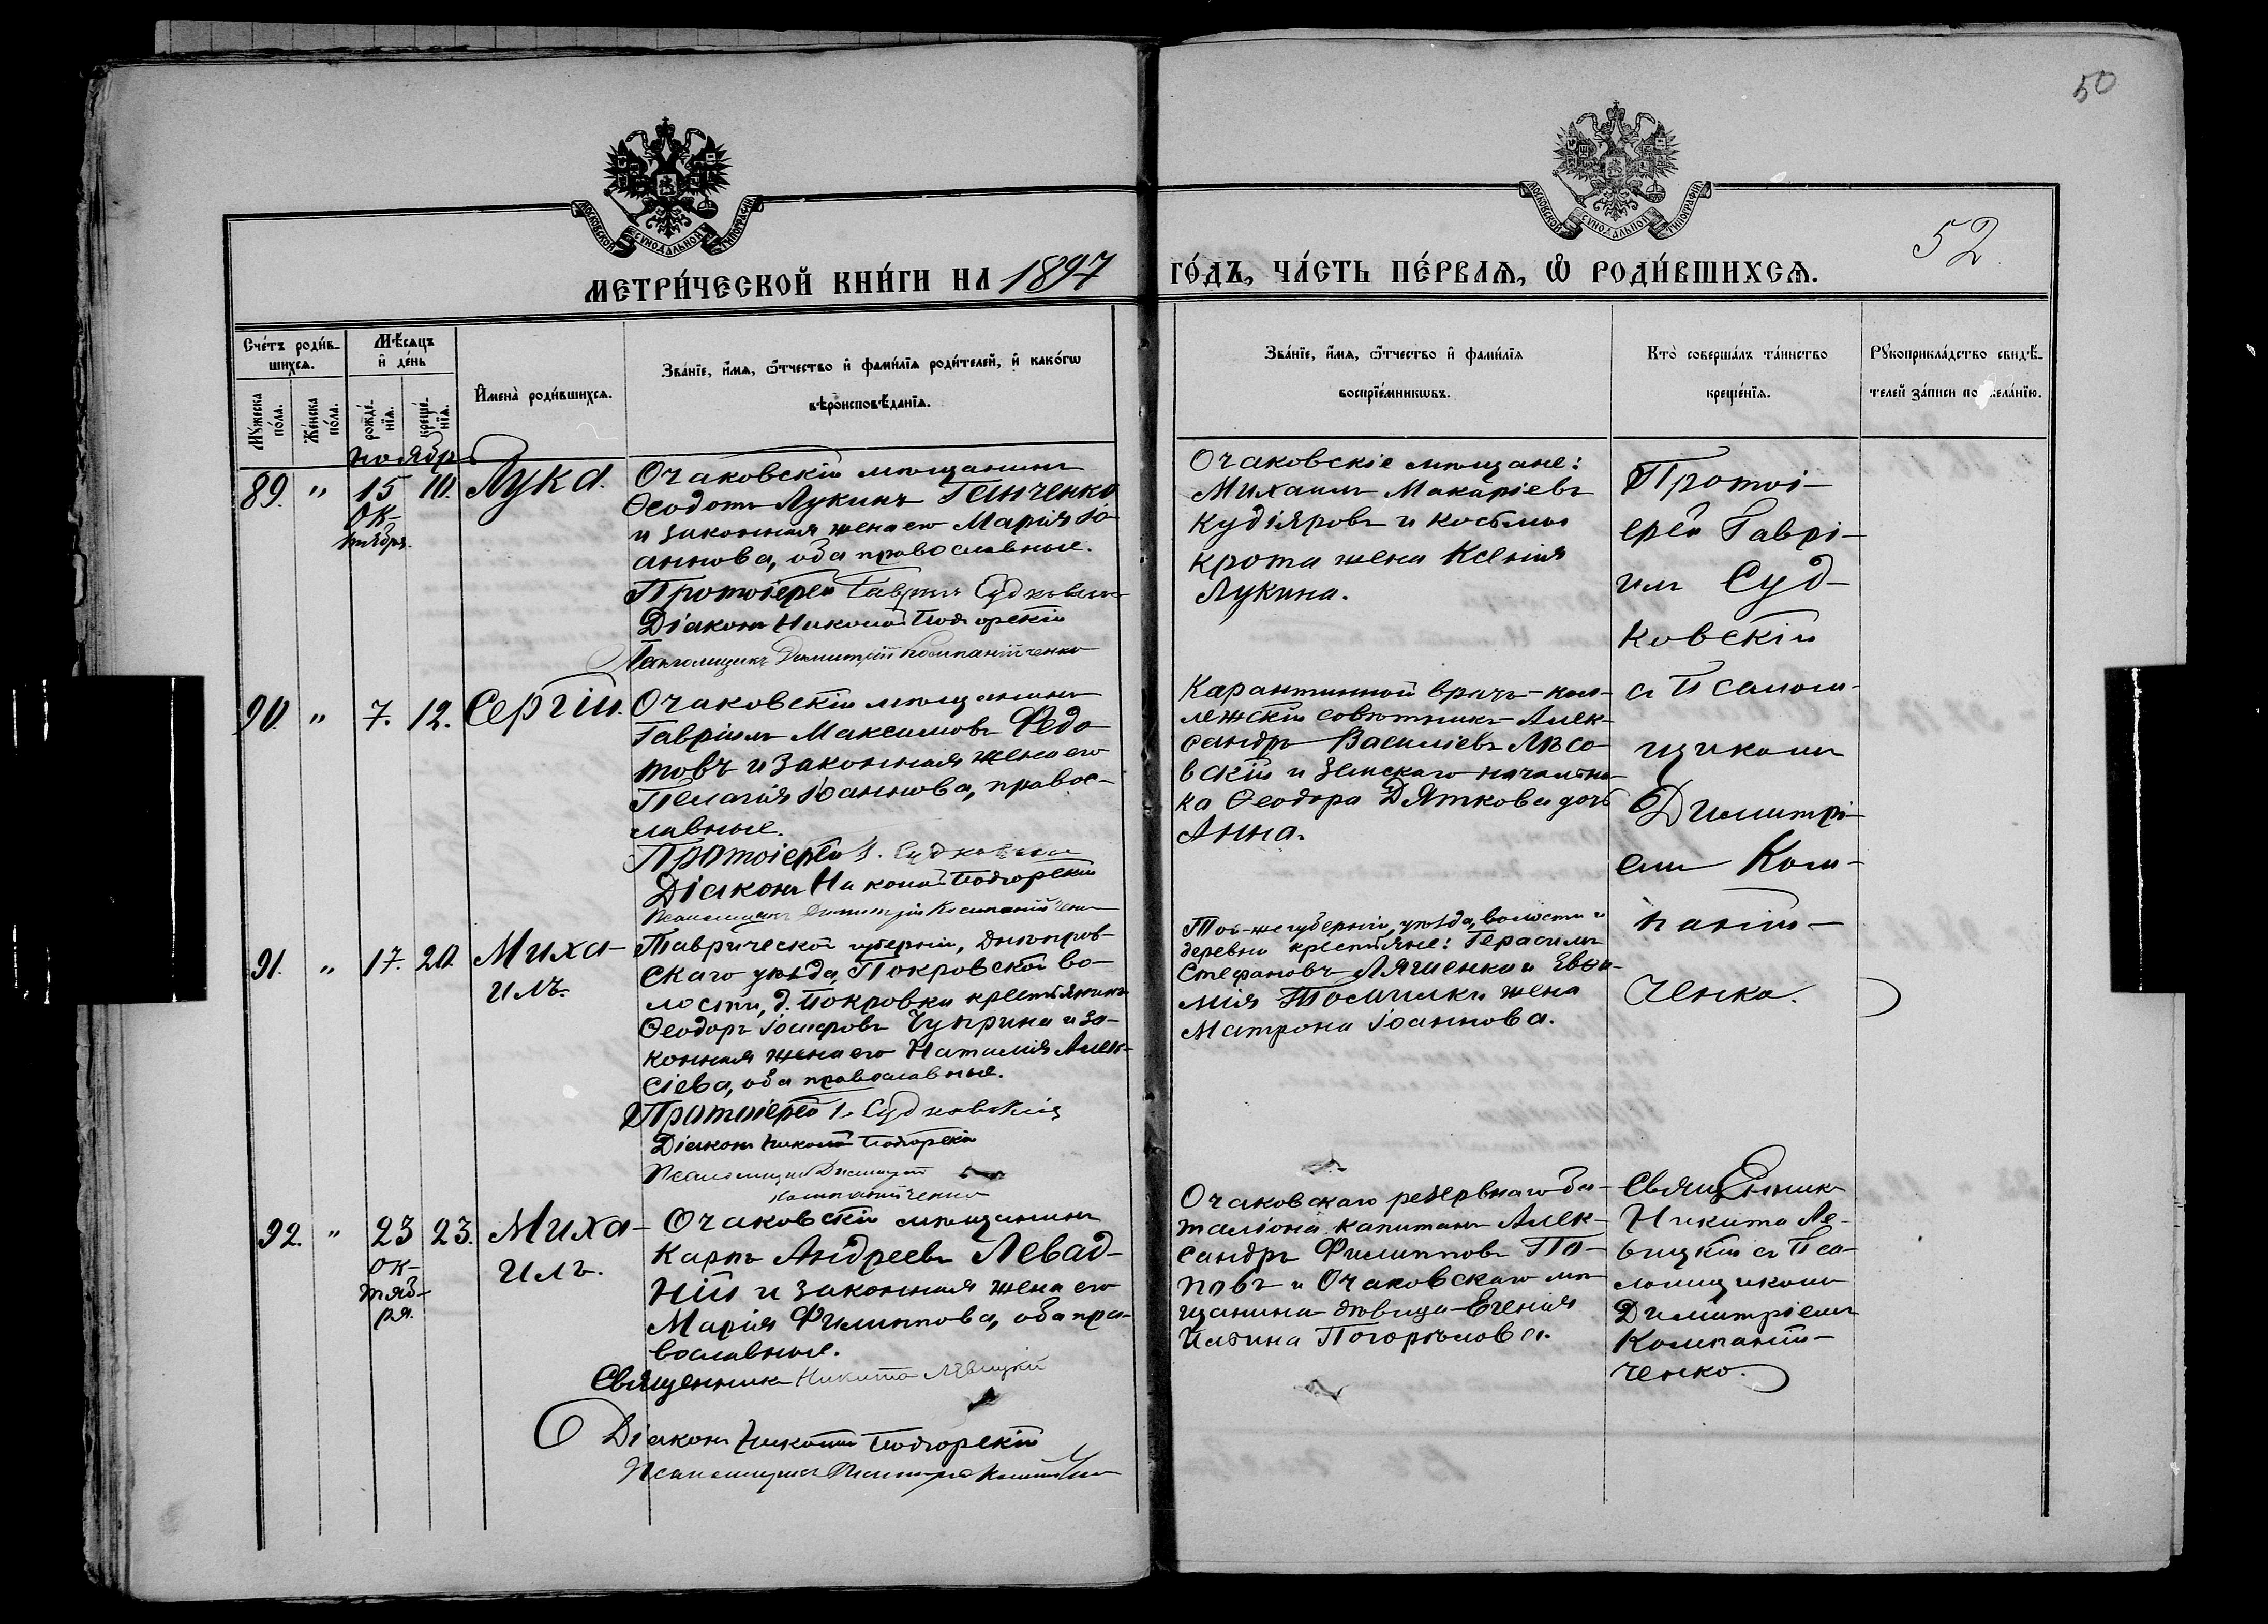 50
МОСКОВСКОЙ СѴНОДАЛЬНОЙ ТИПОГРАФІИ
МОСКОВСКОЙ СѴНОДАЛЬНОЙ ТИПОГРАФІИ
52
МЕТРИ́ЧЕСКОЙ КНИ́ГИ НА 1897
ГО́ДЪ, ЧА́СТЬ ПЕ́РВАѦ, Ѡ҆ РОДИ́ВШИХСѦ.
Сче́тъ роди́в-
шихсѧ.
Мꙋ́жеска
по́ла.
Же́нска
по́ла.
Мѣ́сѧцъ
и҆ де́нь
рожде́-
нїѧ.
креще́-
нїѧ.
И҆мена̀ роди́вшихсѧ.
Зва́нїе, и҆́мѧ, ѻ҆́тчество и҆ фами́лїѧ роди́телей, и҆ како́гѡ
вѣроисповѣ́данїѧ.
Зва́нїе, и҆́мѧ, ѻ҆́тчество и҆ фами́лїѧ
воспрїе́мникѡвъ.
Кто̀ соверша́лъ та́инство
креще́нїѧ.
Рꙋкоприкла́дство свидѣ́-
телей за́писи по жела́нїю.
ноябр
89. " 15 10. Лука.
Ок-
тября.
Очаковскій мѣщанинъ
Ѳеодотъ Лукинъ Генченко
и законная жена его Марія Іо-
аннова, оба православные.
Протоіерей Гавріилъ Судковскій
Діаконъ Николай Подгорскій
Псаломщикъ Димитрій Компанійченко
Очаковскіе мѣщане:
Михаилъ Макаріевъ
Кудіяровъ и Косьмы
Крота жена Ксенія
Лукина.
Протоі-
ерей Гаврі-
илъ Суд-
ковскій
съ Псалом-
щикомъ
Димитрі-
емъ Ком-
паній-
ченко.
90. " 7. 12. Сергій.
Очаковскій мѣщанинъ
Гавріилъ Максимовъ Федо-
товъ и законная жена его
Пелагія Іоаннова, правос-
лавные.
Протоіерей Г. Судковскій
Діаконъ Николай Подгорскій
Псаломщикъ Димитрій Компанійченко
Карантинной врачъ-кол-
лежскій совѣтникъ Алек-
сандръ Василіевъ
и Земскаго начальни-
ка Ѳеодора Дяткова дочь
Анна.
91. " 17. 20. Миха-
илъ.
Таврической губерніи, Днѣпров-
скаго уѣзда, Покровской во-
лости, д. Покровки крестьянинъ
Ѳеодоръ Іосифовъ Чуприна и за-
конная жена его Наталія Алек-
сіева, оба православные.
Протоіерей Г. Судковскій
Діаконъ Николай Подгорскій
Псаломщикъ Димитрій
Компанійченко
Той-же губерніи, уѣзда, волости и
деревни крестьяне: Герасимъ
Стефановъ Ляшенко и Евѳи-
мія Томилки жена
Матрона Іоаннова.
92. " 23 23. Миха-
илъ.
Ок-
тяб-
ря.
Очаковскій мѣщанинъ
Карпъ Андреевъ Левад-
ній и законная жена его
Марія Филиппова, оба пра-
вославные.
Священникъ Никита Лѣвицкій
Діаконъ Николай Подгорскій
Псаломщикъ Димитрій Компанійченко
Очаковскаго резервнаго ба-
таліона капитанъ Алек-
сандръ Филипповъ По-
повъ и Очаковскаго мѣ-
щанина дѣвица Евгенія
Ильина Погорѣлова.
Священникъ
Никита Ле-
вицкій съ Пса-
ломщикомъ
Димитріемъ
Компаній-
ченко.